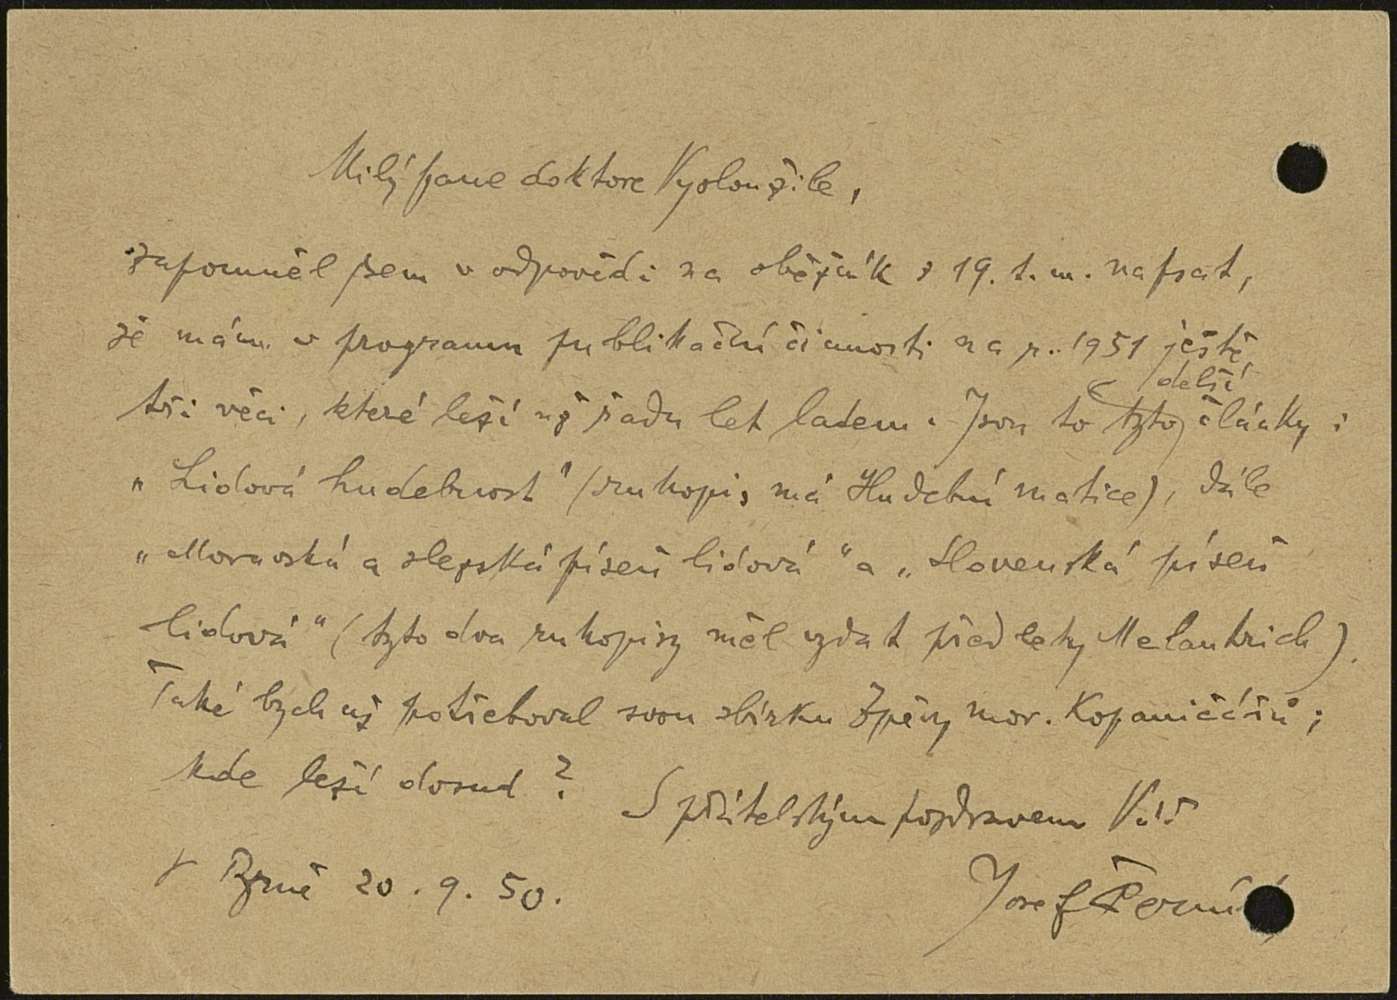 Milý pane doktore Vysloužile,
zapomněl jsem v odpovědi na oběžník z 19. t. m. napsat,
že mám v programu publikační činnosti na r. 1951 ještě
delší
tři věci, které leží už řadu let ladem. Jsou to tyto články:
„Lidová hudebnost“ (rukopis má Hudební matice), dále
„Moravská a slezská píseň lidová“ a „Slovenská píseň
lidová“ (tyto dva rukopisy měl vydat před lety Melantrich).
Také bych už potřeboval svou sbírku Zpěvy mor. Kopaničářů;
kde leží dosud? S přátelským pozdravem Váš
V Brně 20. 9. 50. Josef Černík